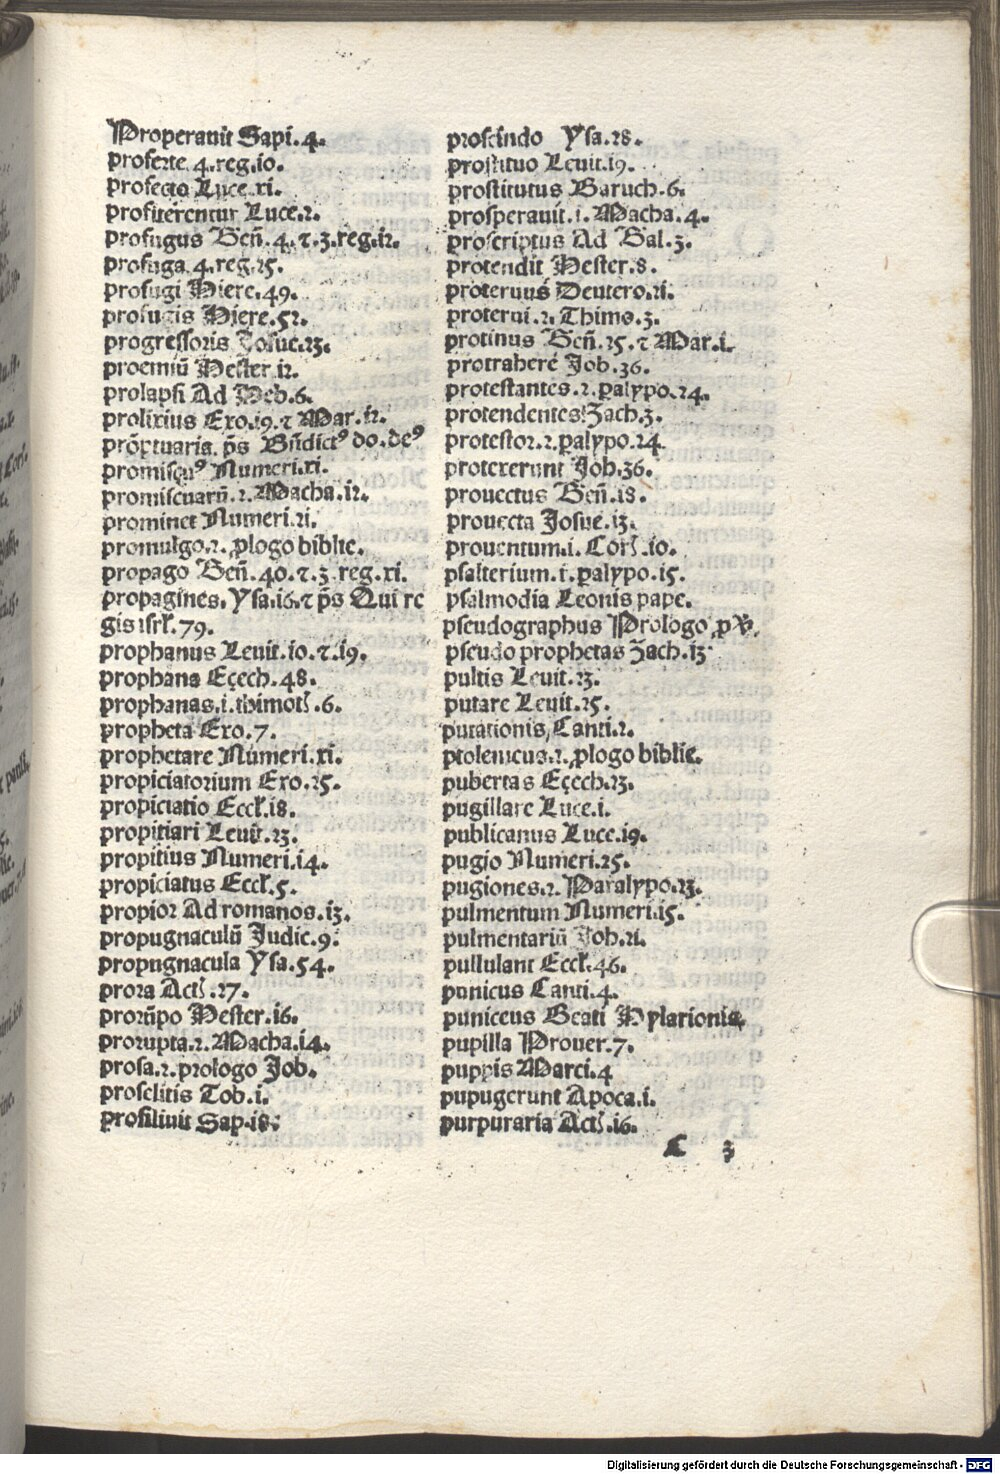 Properauit Sapi.4.
proferte 4.reg.10.
profecto Luce.xi.
profiterentur Luce.2.
profugus Geñ.4.⁊.3.reg.12.
profuga.4.reg.25.
profugi Hiere.49.
profugis Hiere.52.
progressoris Josue.23.
proemiũ Hester.12.
prolapsi Ad Heb.6.
prolixius Exo.19.⁊ Mar.12.
prõptuaria. p̃s Bñdictꝰ do.deꝰ
promiscuꝰ Numeri.xi.
promiscuarũ.2.Macha.12.
prominet Numeri.21.
promulgo.2.ꝓlogo biblie.
propago Geñ.40.⁊.3.reg.xi.
propagines.Ysa.16.⁊ p̃s Qui re
gis isrl̃.79.
prophanus Leuit.10.⁊.19.
prophana Eçech.48.
prophanas.1.thimot̃.6.
propheta Exo.7.
prophetare Numeri.xi.
propiciatorium Exo.25.
propiciatio Eccl̃.18.
propitiari Leuit.23.
propitius Numeri.14.
propiciatus Eccl̃.5.
propior Ad romanos.13.
propugnaculũ Judic.9.
propugnacula Ysa.54.
prora Act̃.27.
prorũpo Hester.16.
prorupta.2.Macha.14.
prosa.2.prologo Job.
proselitis Tob.1.
prosiliuit Sap.18.
proscindo Ysa.28.
prostituo Leuit.19.
prostitutus Baruch.6.
prosperauit.1.Macha.4.
proscriptus Ad Gal.3.
protendit Hester.8.
proteruus Deutero.21.
proterui.2.Thimo.3.
protinus Geñ.15.⁊ Mar.1.
protrahere Job.36.
protestantes.2.ꝑalypo.24.
protendentes Zach.3.
protestor.2.ꝑalypo.24.
protexerunt Job.36.
prouectus Geñ.18.
prouecta Josue.13.
prouentum.1.Cor̃.10.
psalterium.1.ꝑalypo.15.
psalmodia Leonis pape.
pseudographus Prologo
pseudo prophetas Zach.13
pultis Leuit.23.
putare Leuit.25.
putationis Canti.2.
ptolemeus.2.ꝓlogo biblie.
pubertas Eçech.23.
pugillare Luce.1.
publicanus Luce.19.
pugio Numeri.25.
pugiones.2.Paralypo.23.
pulmentum Numeri.15.
pulmentariũ Joh.21.
pullulant Eccl̃.46.
punicus Canti.4.
puniceus Beati Hylarionis
pupilla Prouer.7.
puppis Marci.4
pupugerunt Apoca.1.
purpuraria Act̃.16.
C 3
Digitalisierung gefördert durch die Deutsche Forschungsgemeinschaft - DFG